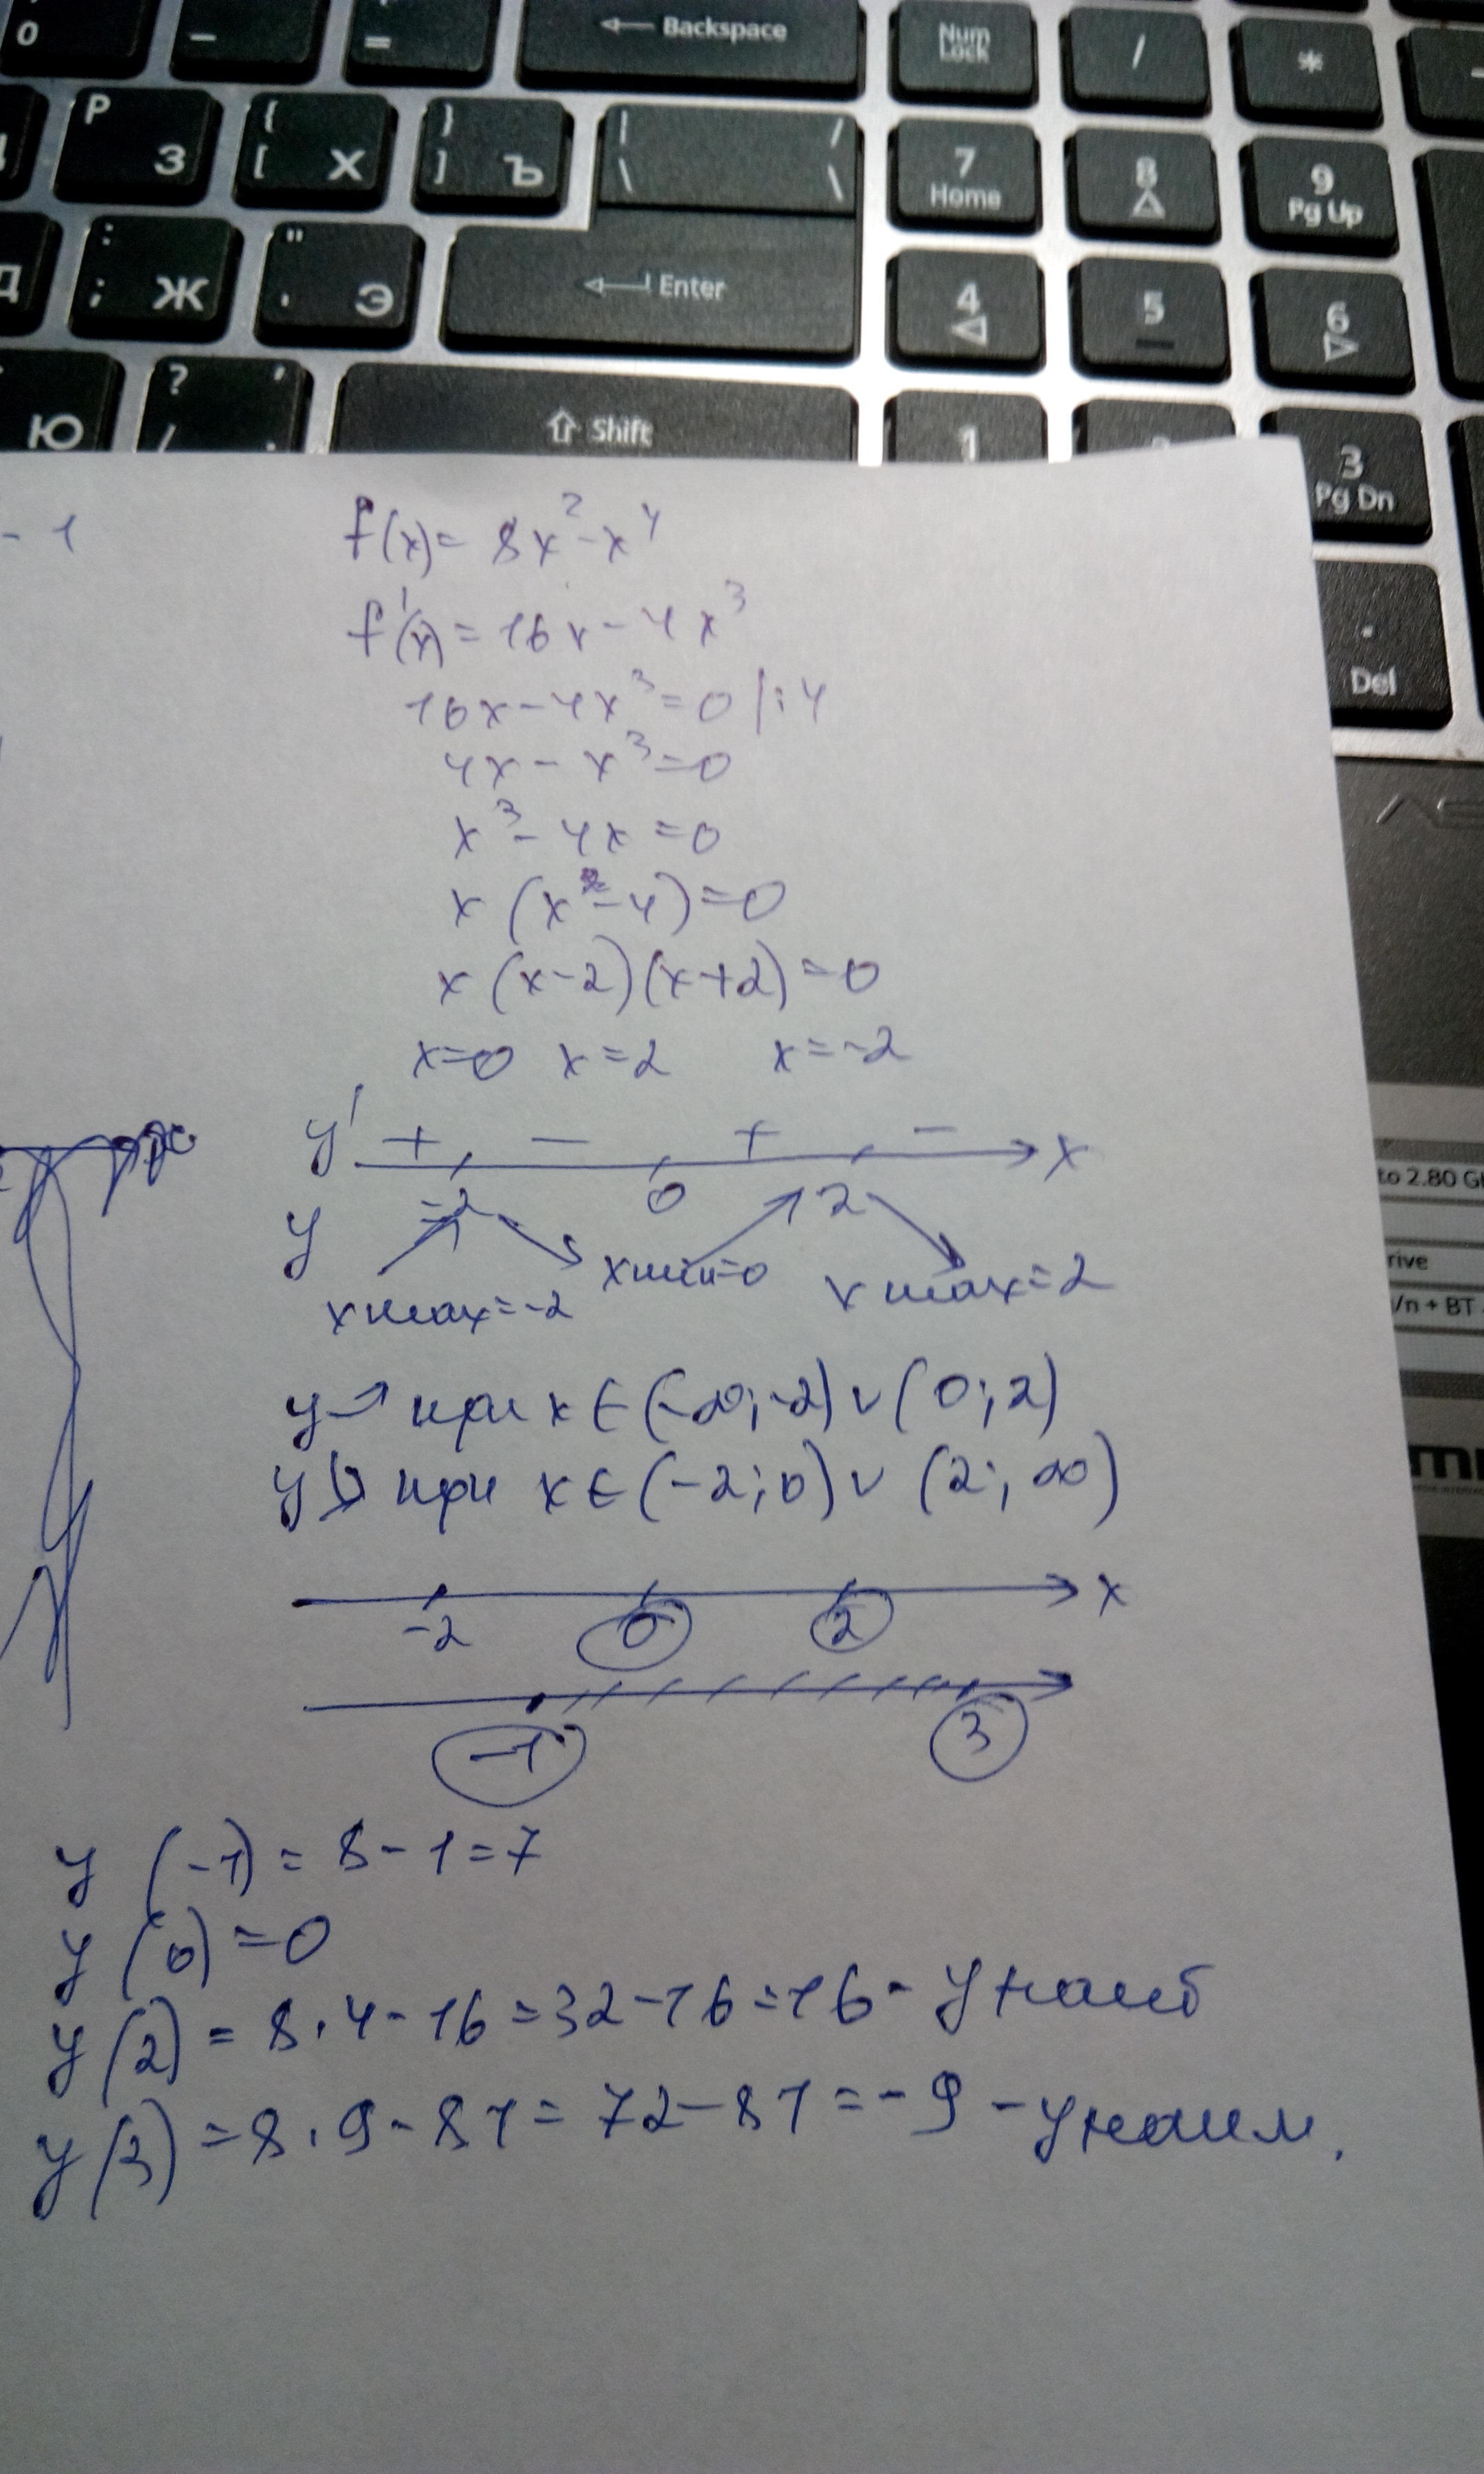 0 _ - = ← Backspace Num Lock / *
P З { [ Х } ] Ъ | \ / \ 7 Home 8 9 Pg Up
Д : ; Ж " ' Э ← Enter 4 5 6
Ю ? / ' . ⇧ Shift 1 3 Pg Dn
. Del
AS
to 2.80 G
rive
/n + BT
- 1
f(x) = 8x² - x⁴
f'(x) = 16x - 4x³
16x - 4x³ = 0 |:4
4x - x³ = 0
x³ - 4x = 0
x (x² - 4) = 0
x (x-2)(x+2) = 0
x=0 x=2 x=-2
y' + - + - x
-2 0 2
y
xmin=0
xmax=-2 xmax=2
y↗ при x ∈ (-∞; -2) ∨ (0; 2)
y↘ при x ∈ (-2; 0) ∨ (2; ∞)
x
-2 0 2
-1 3
y (-1) = 8 - 1 = 7
y (0) = 0
y (2) = 8 · 4 - 16 = 32 - 16 = 16 - y наиб
y (3) = 8 · 9 - 81 = 72 - 81 = -9 - y наим.